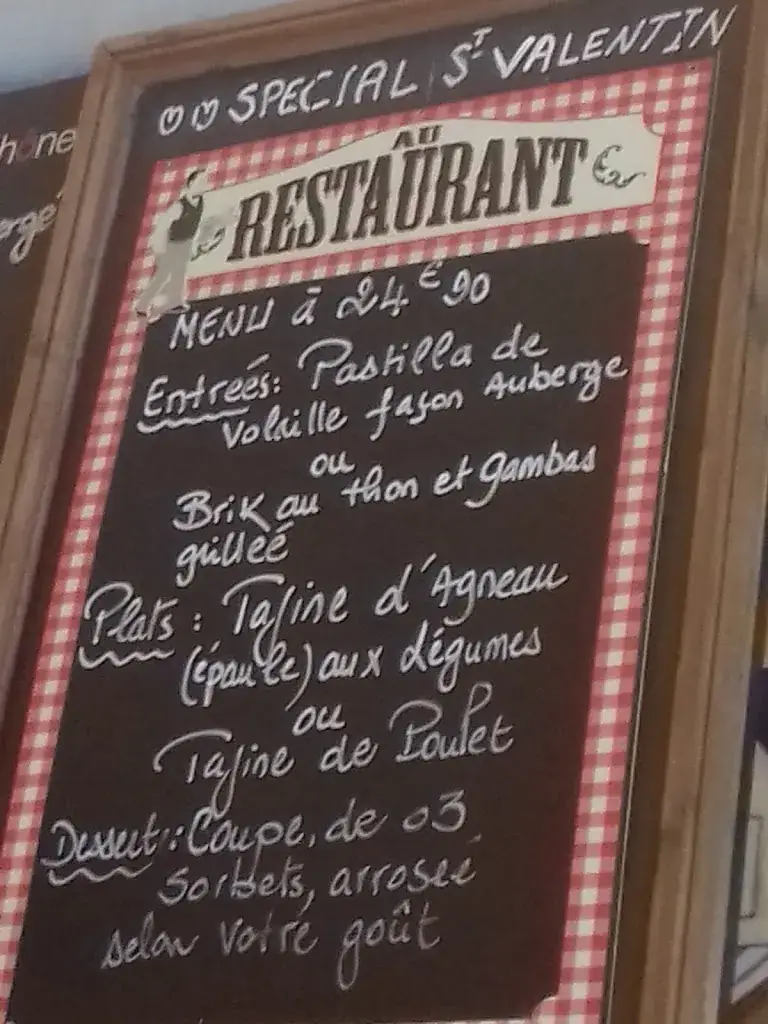 SPECIAL ST VALENTIN
AU
RESTAURANT
MENU à 24€90
Entrées: Pastilla de
Volaille façon Auberge
ou
Brik au thon et gambas
grilleé
Plats: Tajine d'Agneau
(épaule) aux légumes
ou
Tajine de Poulet
Dessert: Coupe, de 03
Sorbets, arrosée
selon votre goût